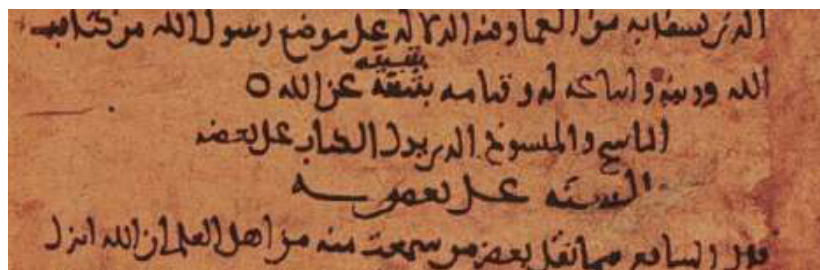 الذين يسقط به من العما وفيه الدلالة على موضع رسول الله من كتاب
الله ودينه واتباعه له وقيامه بتبيينه عن الله ه
الناسخ والمنسوخ الذي يدل الكتاب على بعضه
السنة على بعضه
قال الشافعي مما نقل بعض من سمعت منه من اهل العلم ان الله انزل